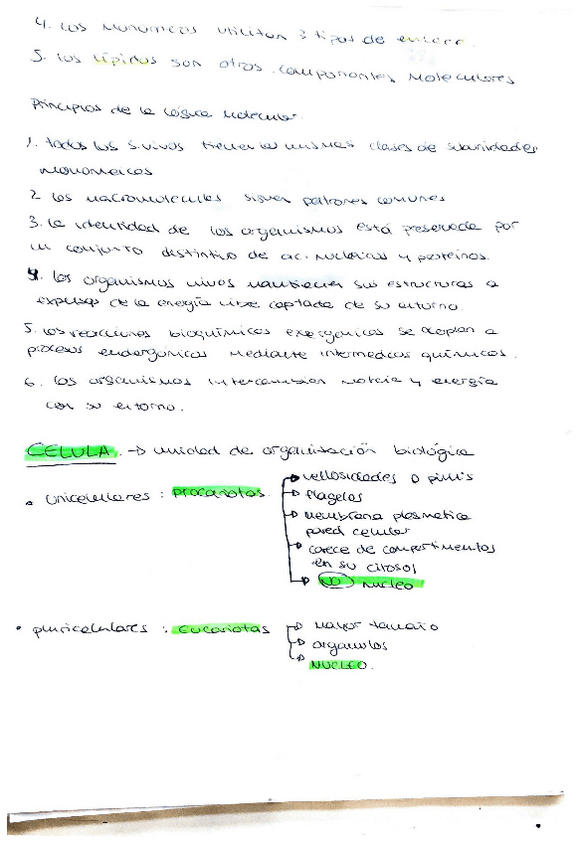 4. Los monómeros utilizan 3 tipos de enlace.
5. los lípidos son otros componentes moleculares
Principios de la lógica molecular.
1. todos los s.vivos tienen las mismas clases de subunidades
monoméricas
2 las macromoléculas siguen patrones comunes
3. la identidad de los organismos está preservada por
un conjunto distintivo de ac. nucleicos y proteínas.
4. los organismos vivos mantienen sus estructuras a
expensas de la energía libre captada de su entorno.
5. las reacciones bioquímicas exergónicas se acoplan a
procesos endergónicos mediante intermedios químicos.
6. los organismos intercambian materia y energía
con su entorno.
CELULA. → unidad de organización biológica
• Unicelulares : procariotas
→ vellosidades o pili's
→ flagelos
→ membrana plasmática
pared celular
→ carece de compartimentos
en su citosol
→ NO nucleo
• pluricelulares : eucariotas
→ mayor tamaño
→ organulos
→ NUCLEO.